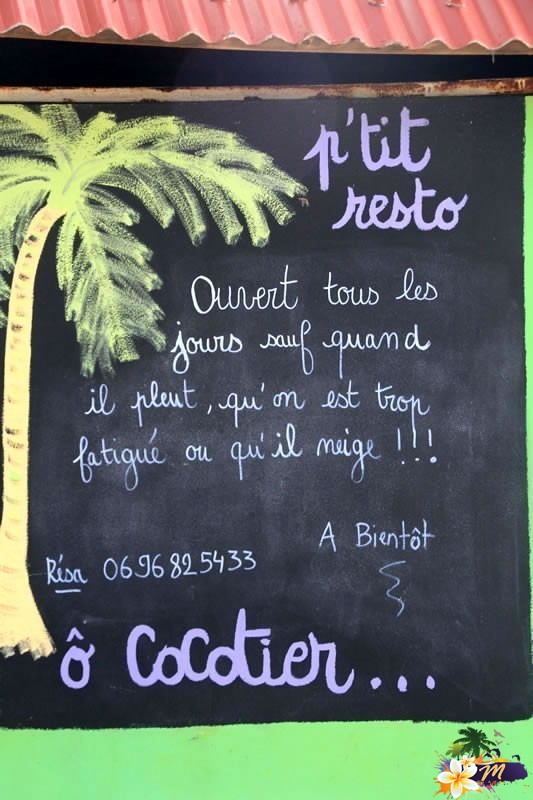 p'tit
resto
Ouvert tous les
jours sauf quand
il pleut, qu'on est trop
fatigué ou qu'il neige !!!
A Bientôt
Résa 0696825433
ô CoCotier...
M